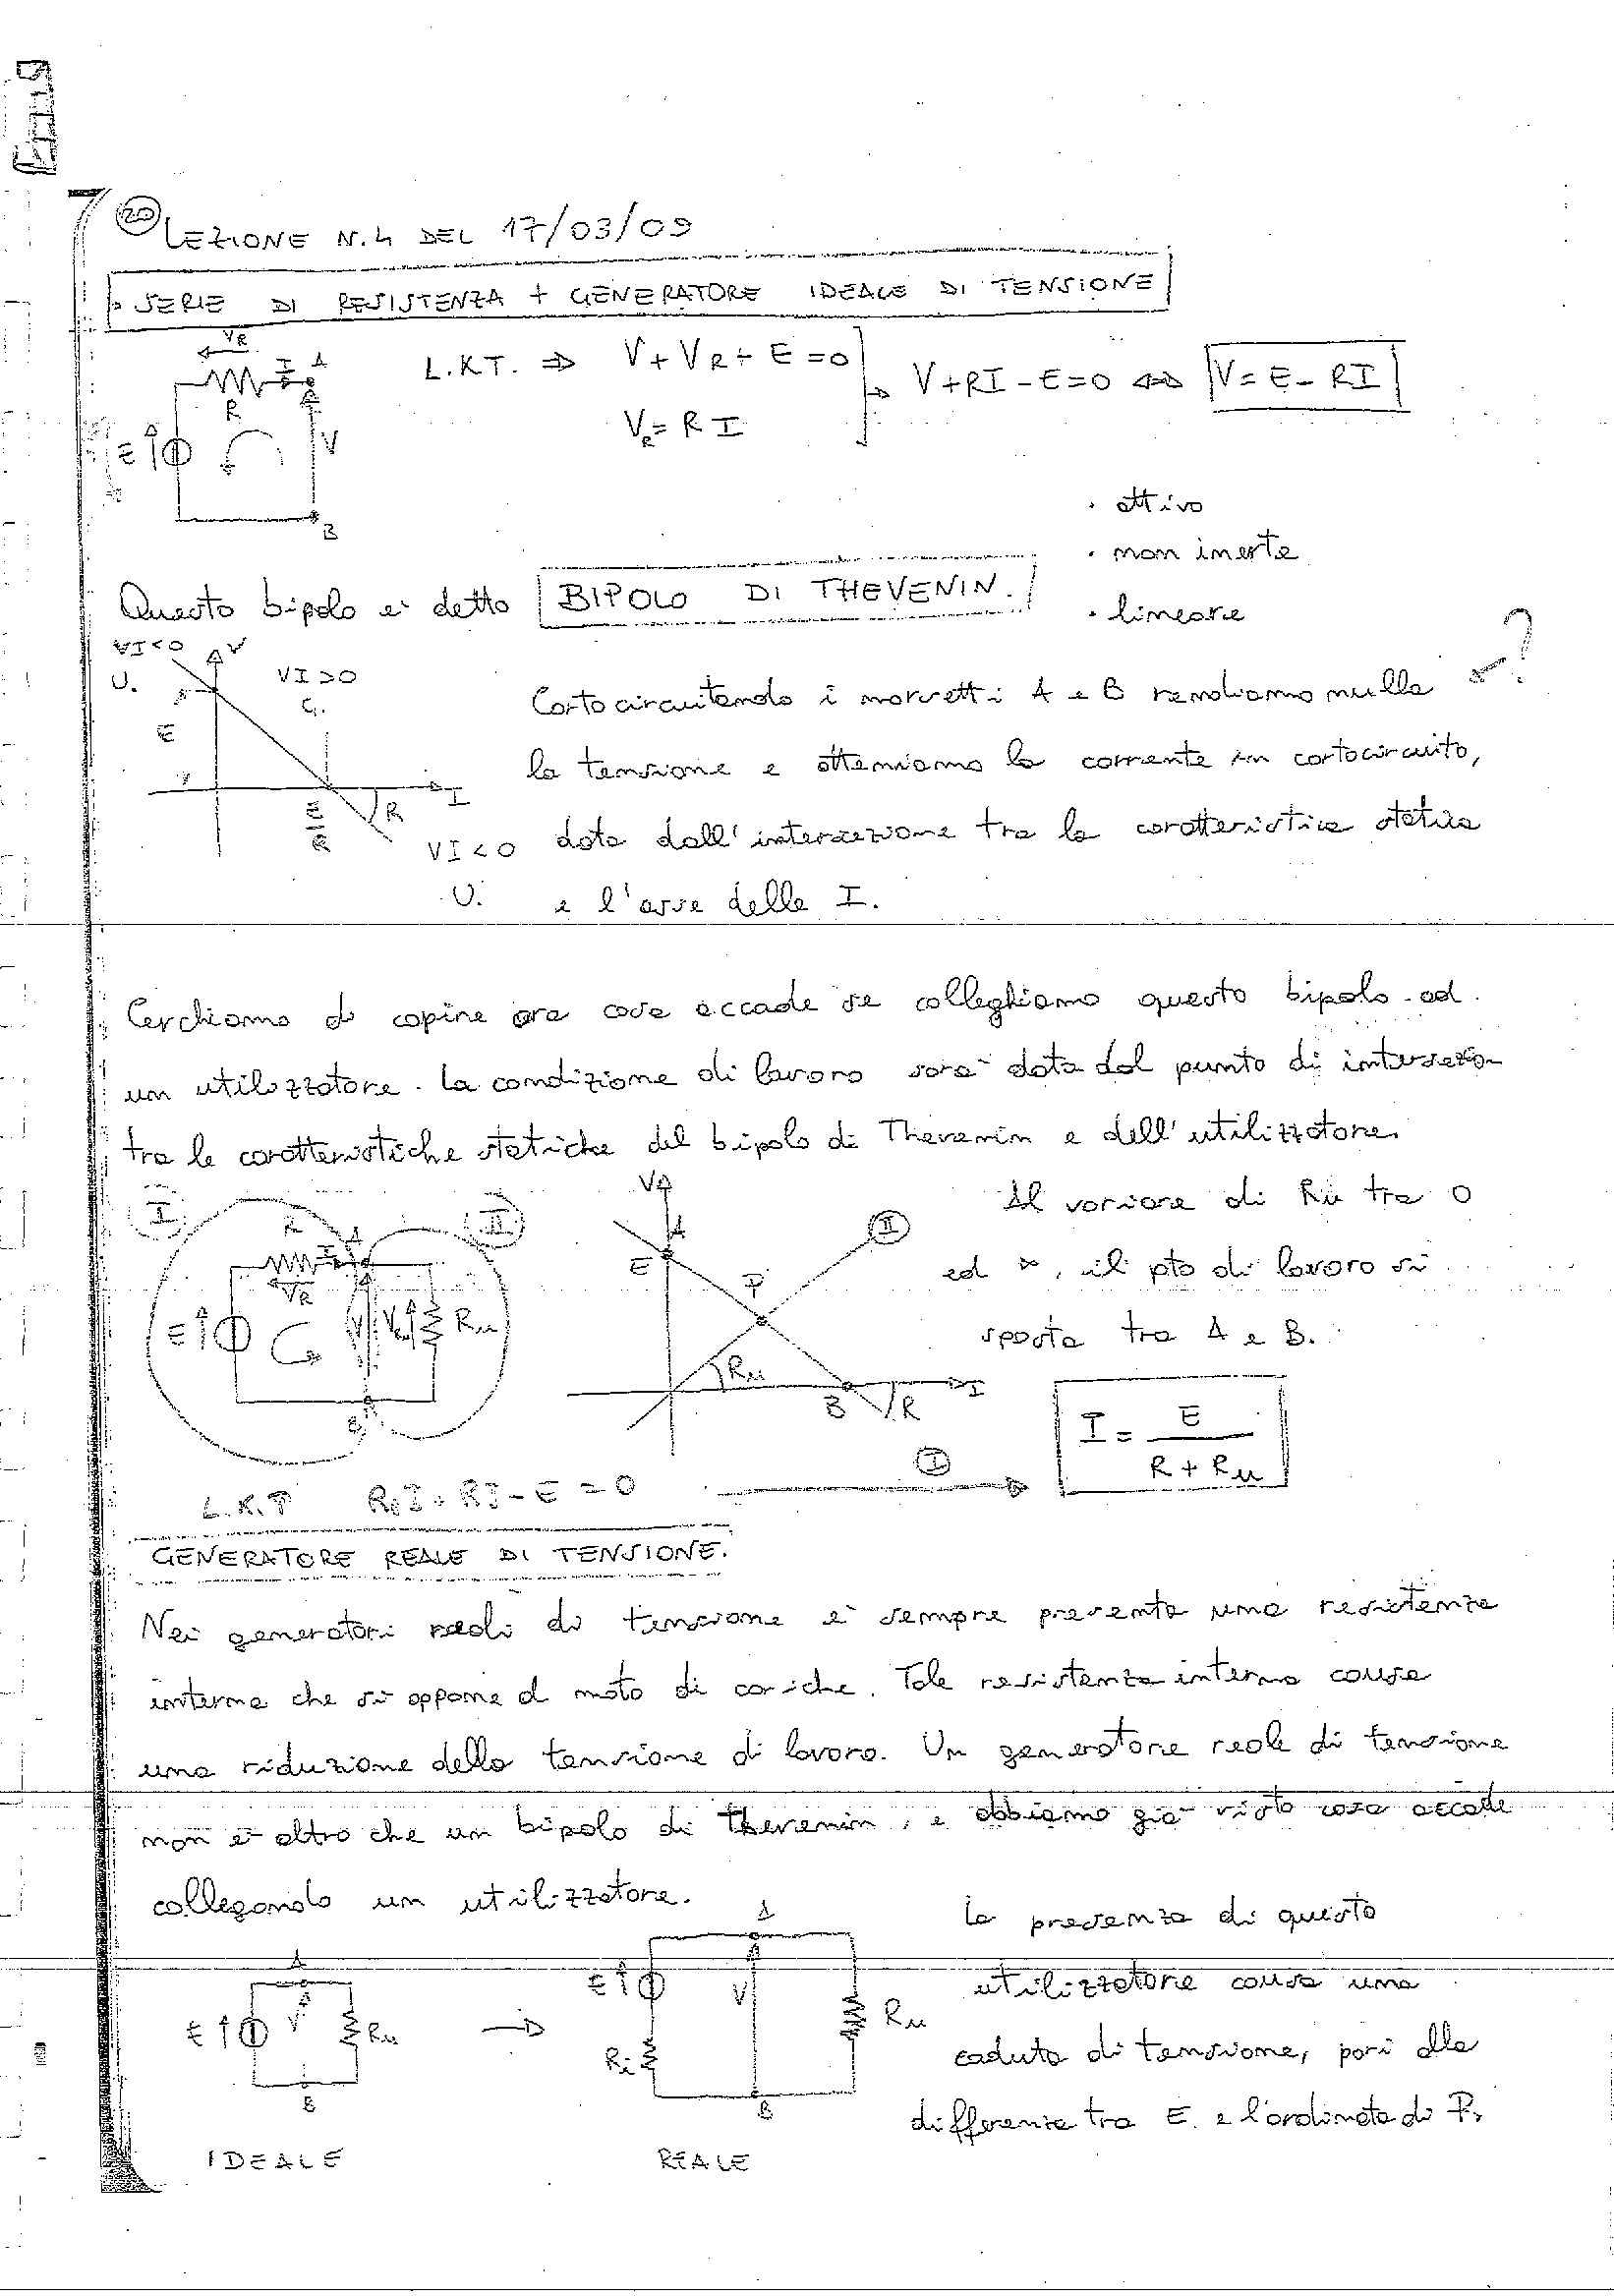 20
LEZIONE N.4 DEL 17/03/09
SERIE DI RESISTENZA + GENERATORE IDEALE DI TENSIONE
VR
I A
R
E
V
B
L.K.T. ⇒ V + VR - E = 0
VR = R I
V + RI - E = 0 ⇔ V = E - RI
• attivo
• non inerte
• lineare
Questo bipolo è detto BIPOLO DI THEVENIN.
VI<0 V
U.
VI>0
G.
E
E/R
R
I
VI<0
U.
?
Cortocircuitando i morsetti A e B rendiamo nulla
la tensione e otteniamo la corrente in cortocircuito,
data dall'intersezione tra la caratteristica statica
e l'asse delle I.
Cerchiamo di capire ora cosa accade se colleghiamo questo bipolo ad
un utilizzatore. La condizione di lavoro sarà data dal punto di intersezion
tra le caratteristiche statiche del bipolo di Thevenin e dell'utilizzatore.
I
R
I A
II
VR
E
V
Vu
Ru
B
V
A
E
P
II
Ru
B
R
I
I
Al variare di Ru tra 0
ed ∞, il pto di lavoro si
sposta tra A e B.
L.K.T RuI + RI - E = 0
I = E / (R + Ru)
GENERATORE REALE DI TENSIONE.
Nei generatori reali di tensione è sempre presente una resistenza
interna che si oppone al moto di cariche. Tale resistenza interna causa
una riduzione della tensione di lavoro. Un generatore reale di tensione
non è altro che un bipolo di Thevenin, e abbiamo già visto cosa accade
collegando un utilizzatore.
La presenza di questo
utilizzatore causa una
caduta di tensione, pari alla
differenza tra E e l'ordinata di P.
A
E
V
Ru
B
IDEALE
A
E
V
Ru
Ri
B
REALE